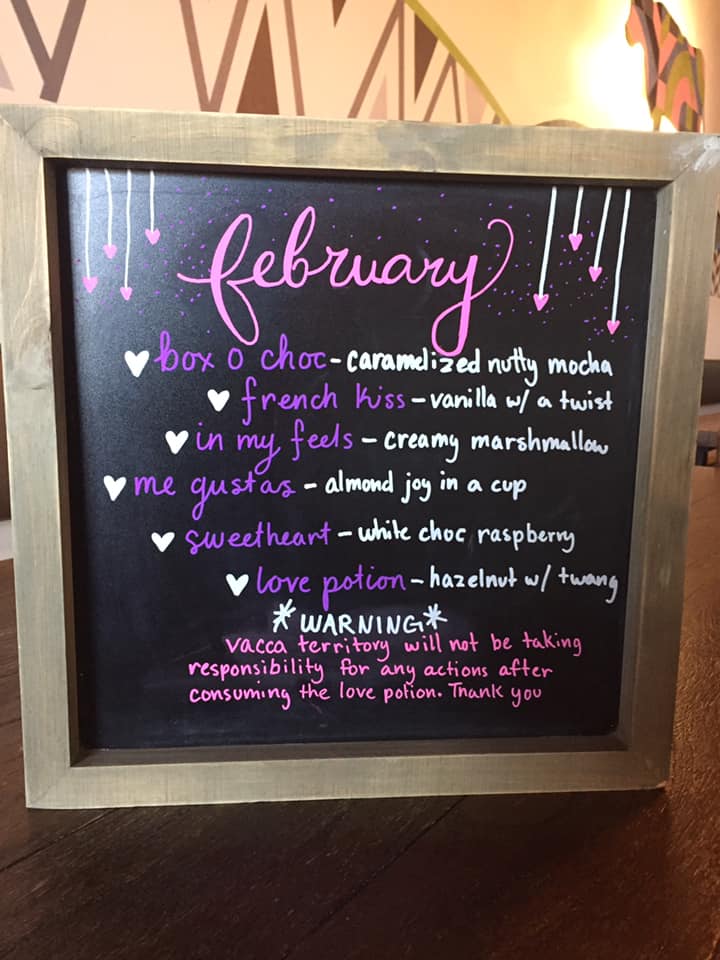 february
box o choc - caramelized nutty mocha
french kiss - vanilla w/ a twist
in my feels - creamy marshmallow
me gustas - almond joy in a cup
sweetheart - white choc raspberry
love potion - hazelnut w/ twang
*WARNING*
vacca territory will not be taking
responsibility for any actions after
consuming the love potion. Thank you